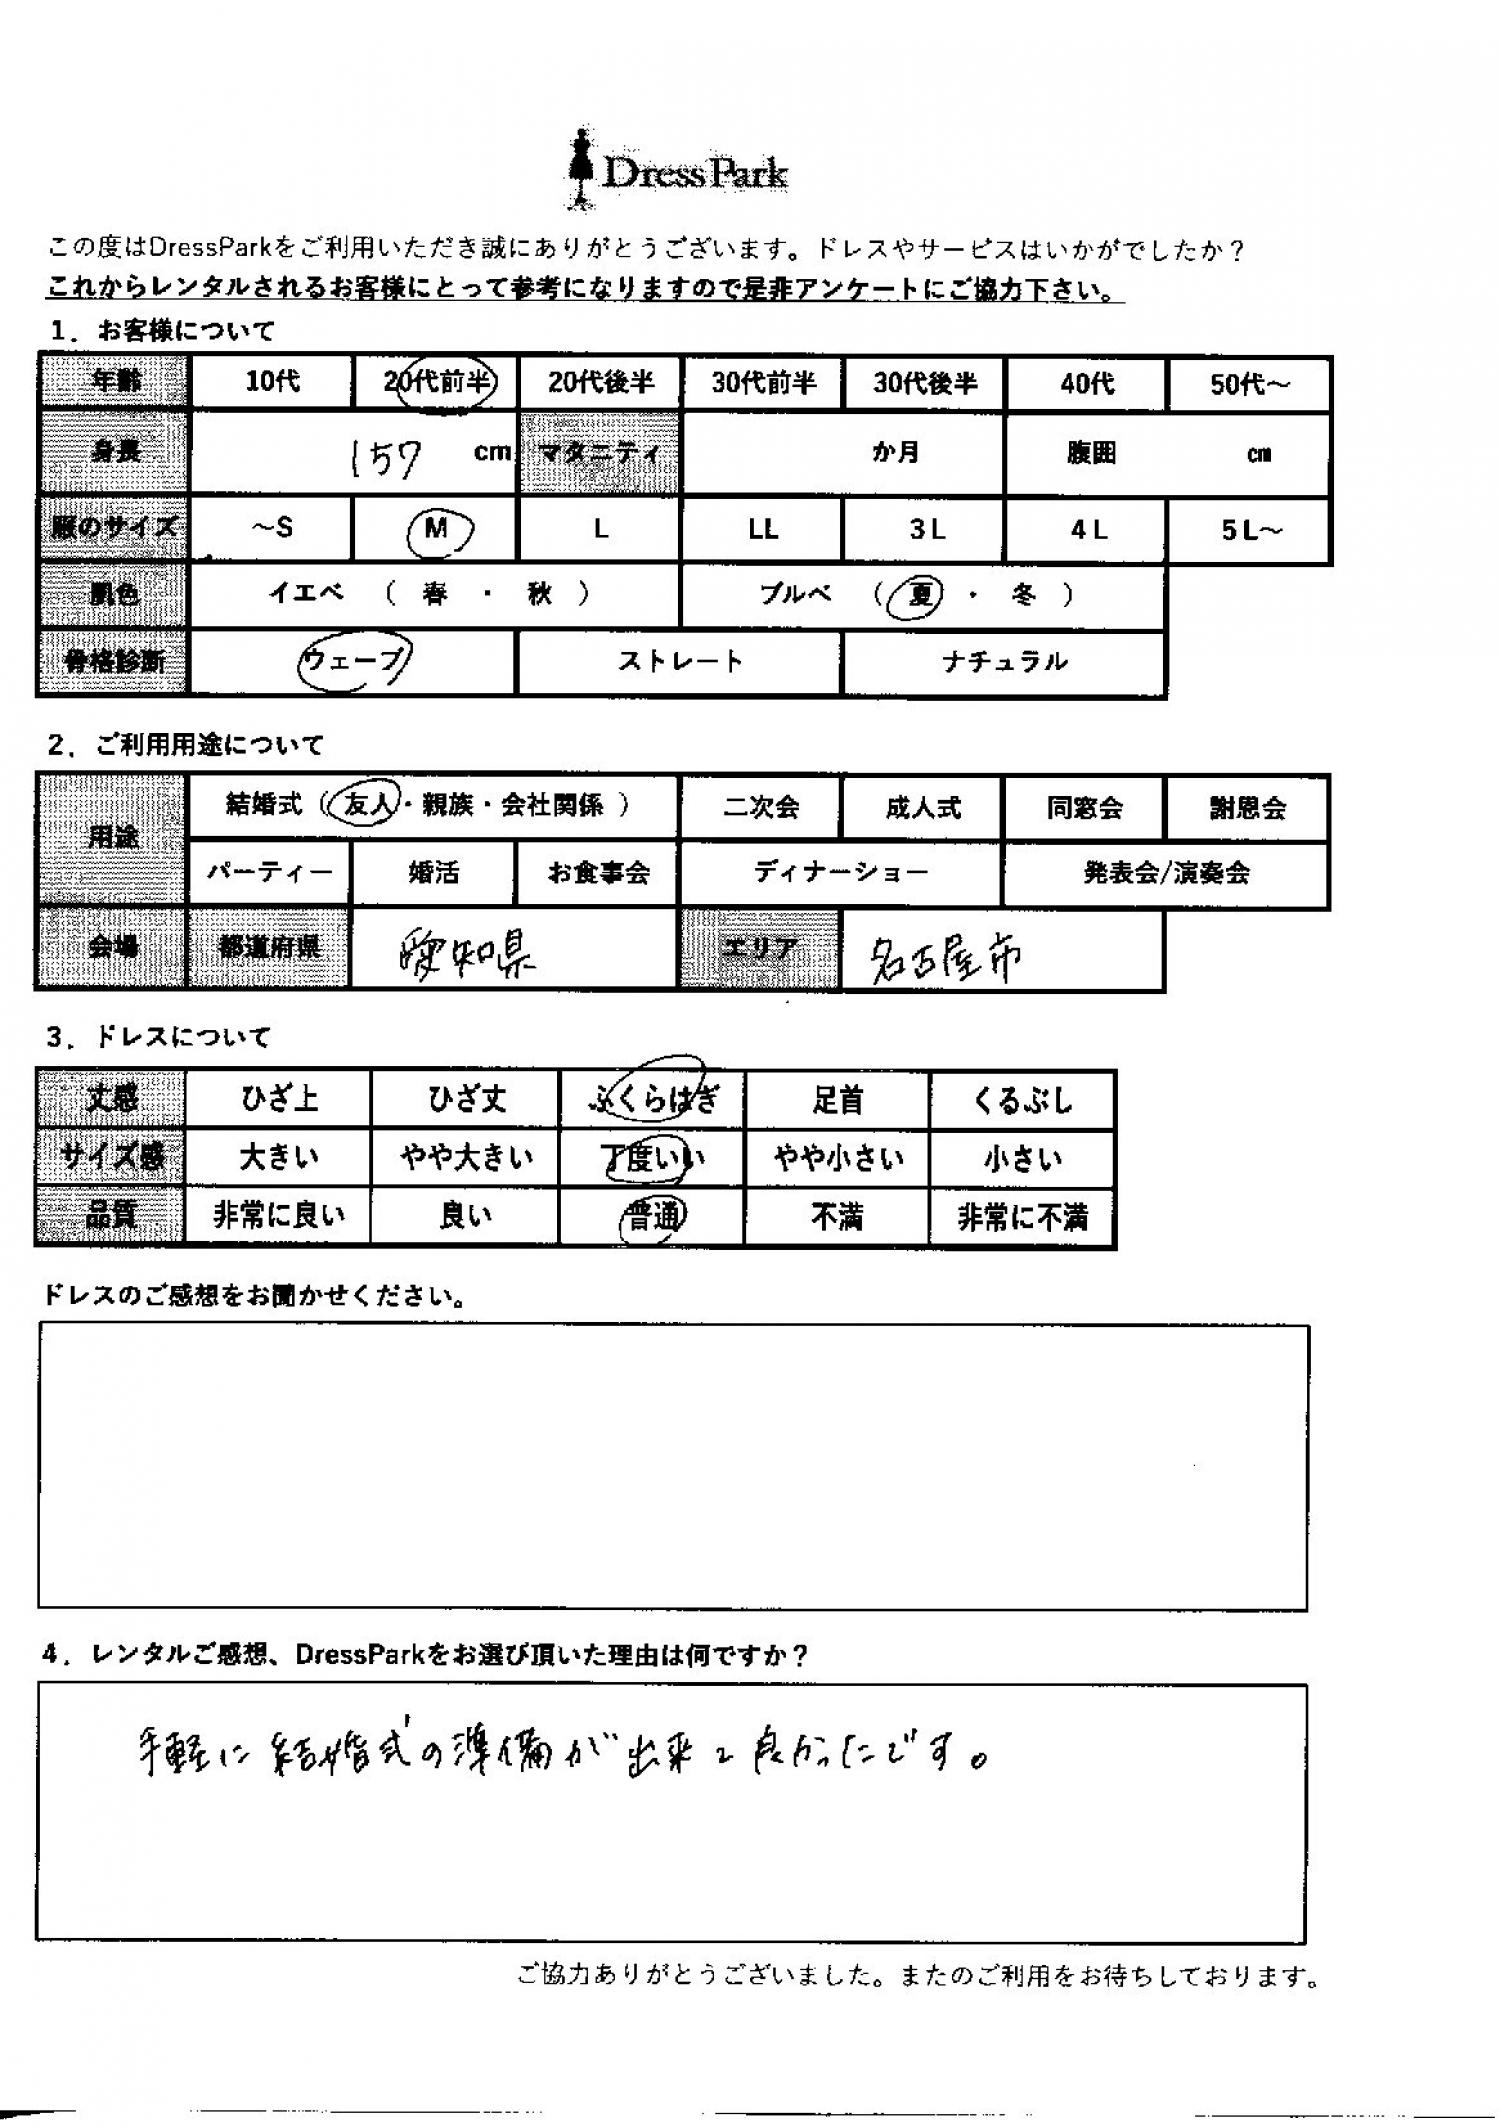 DressPark
この度はDressParkをご利用いただき誠にありがとうございます。ドレスやサービスはいかがでしたか？
これからレンタルされるお客様にとって参考になりますので是非アンケートにご協力下さい。
1．お客様について
年齢 10代 20代前半 20代後半 30代前半 30代後半 40代 50代～
身長 157 cm マタニティ か月 腹囲 cm
服のサイズ ～S M L LL 3L 4L 5L～
肌色 イエベ （ 春 ・ 秋 ） ブルベ （ 夏 ・ 冬 ）
骨格診断 ウェーブ ストレート ナチュラル
2．ご利用用途について
用途 結婚式（友人・親族・会社関係） 二次会 成人式 同窓会 謝恩会
パーティー 婚活 お食事会 ディナーショー 発表会/演奏会
会場 都道府県 愛知県 エリア 名古屋市
3．ドレスについて
丈感 ひざ上 ひざ丈 ふくらはぎ 足首 くるぶし
サイズ感 大きい やや大きい 丁度いい やや小さい 小さい
品質 非常に良い 良い 普通 不満 非常に不満
ドレスのご感想をお聞かせください。
4．レンタルご感想、DressParkをお選び頂いた理由は何ですか？
手軽に結婚式の準備が出来て良かったです。
ご協力ありがとうございました。またのご利用をお待ちしております。